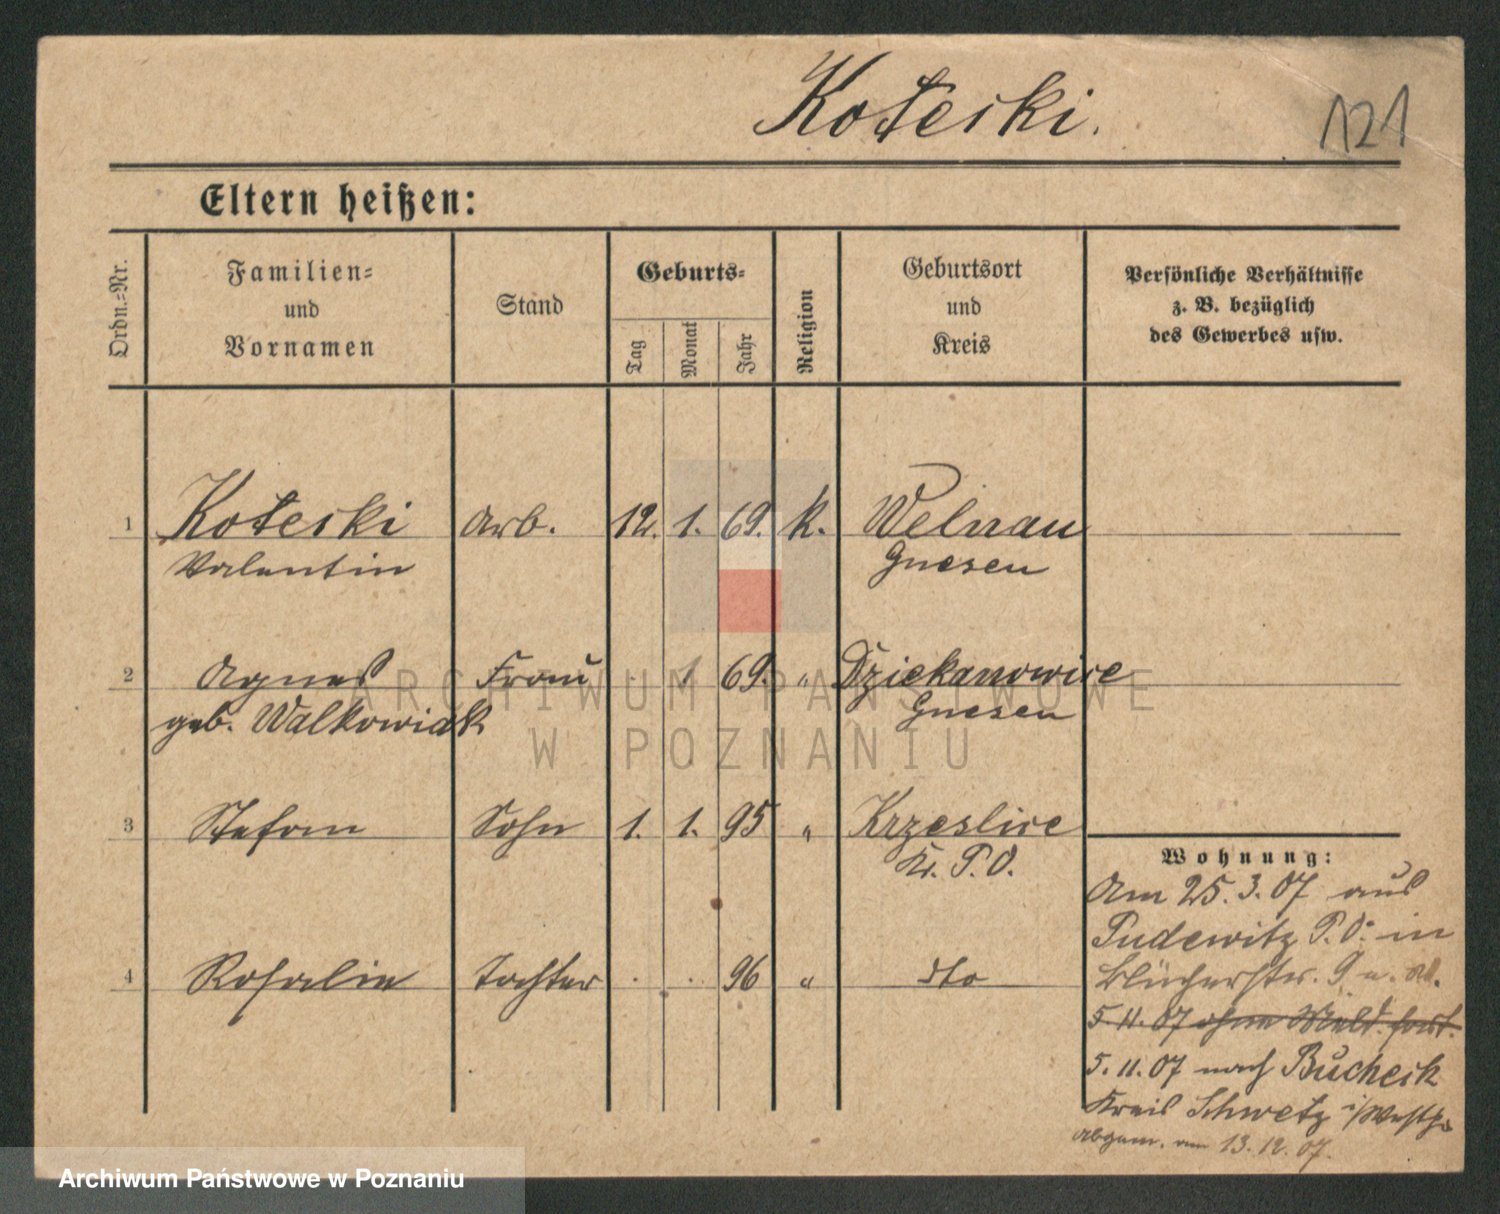 Koteski.
121
Eltern heißen:
Ordn.=Nr.
Familien=
und
Vornamen
Stand
Geburts=
Tag
Monat
Jahr
Religion
Geburtsort
und
Kreis
Persönliche Verhältnisse
z. B. bezüglich
des Gewerbes usw.
1 Koteski Arb. 12. 1. 69. k. Welnau
Valentin Gnesen
2 Agnes Frau . 1 69. " Dziekanowice
geb. Walkowiak Gnesen
3 Stefan Sohn 1. 1. 95 " Krzeslice
Kr. P. O.
4 Rosalie Tochter . . 96 " dto
Wohnung:
Am 25. 3. 07 aus
Pudewitz P. O. in
Blücherstr. 9 a.
5. 11. 07 ohne Meld. fort.
5. 11. 07 nach Bucheck
Kreis Schwetz i/Westpr
abgem. am 13. 12. 07.
ARCHIWUM PAŃSTWOWE
W POZNANIU
Archiwum Państwowe w Poznaniu